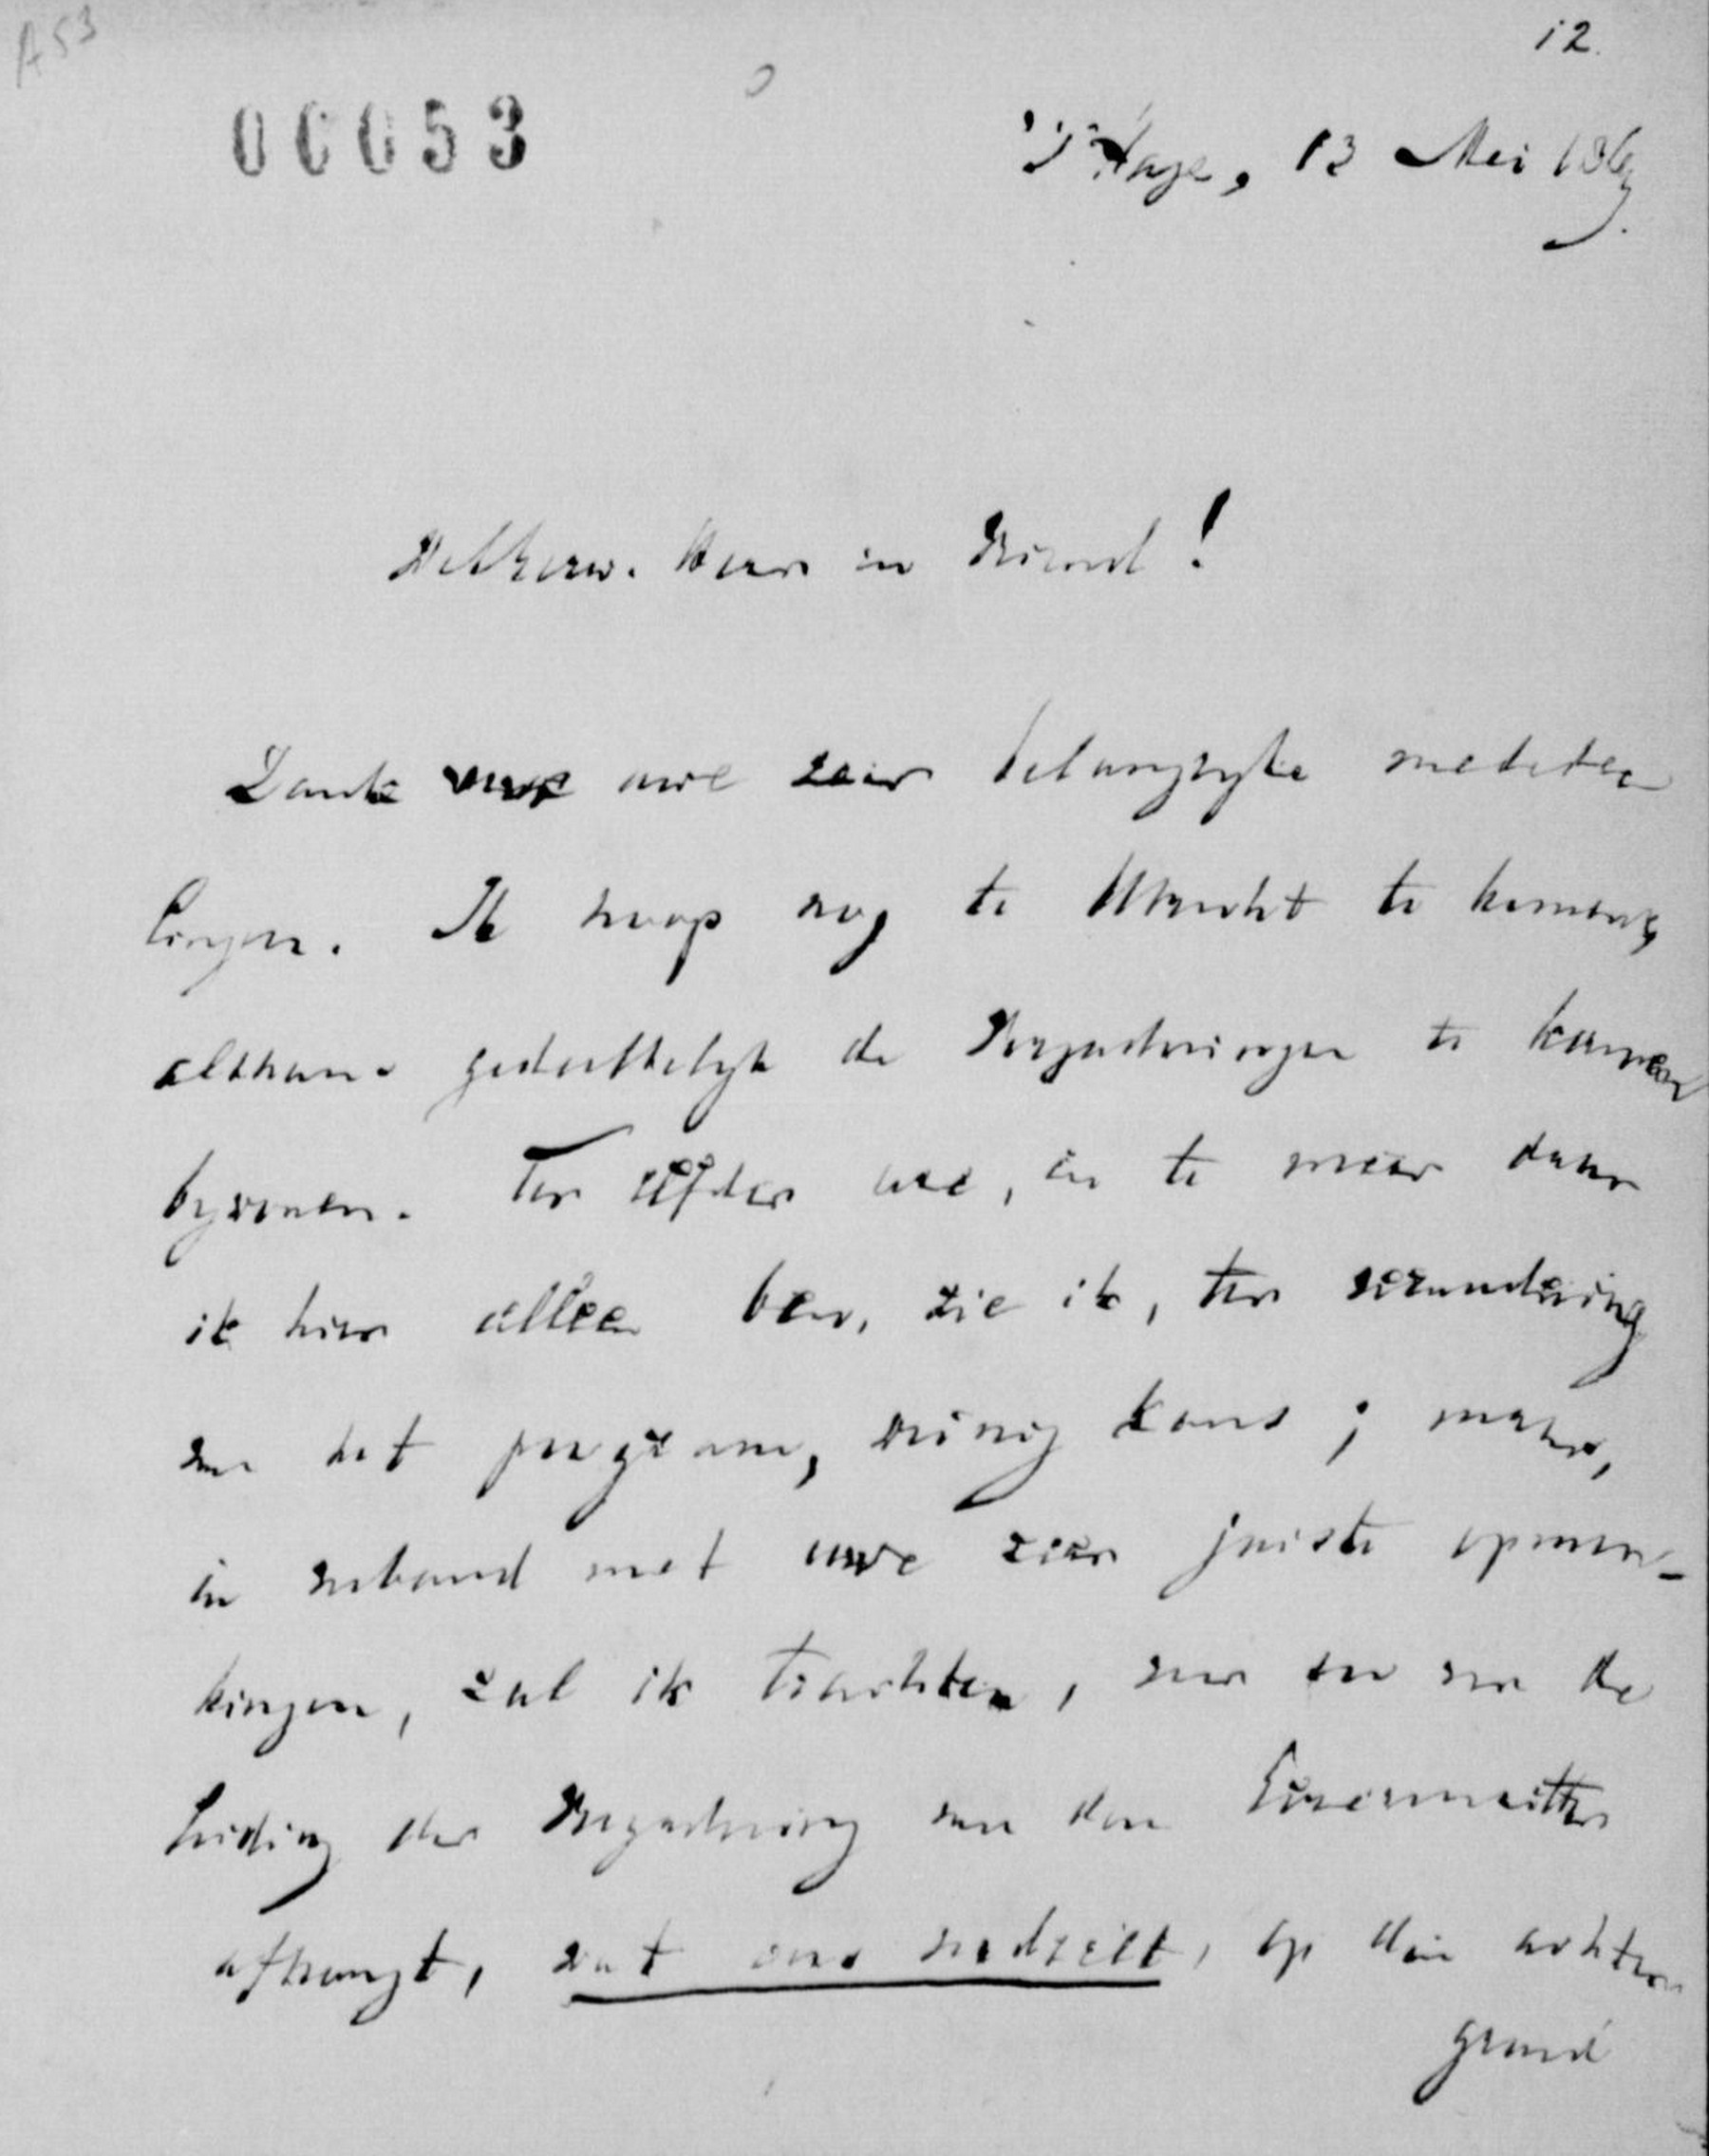 A53
12.
00053
's Hage, 13 Mei 1869.
WelEerw. Heer en Vriend!
Dank voor uwe zeer belangrijke mededee
lingen. Ik hoop nog te Utrecht te komen,
althans gedeeltelijk de Vergaderingen te kunnen
bijwonen. Ter elfder ure, en te meer daar
ik hier alleen ben, zie ik, ter verandering
van het program, weinig kans; maar,
in verband met uwe zeer juiste opmer-
kingen, zal ik trachten, voor zoo ver de
leiding der Vergadering van den Eerevoorzitter
afhangt, wat ons verdeelt, op den achter
grond